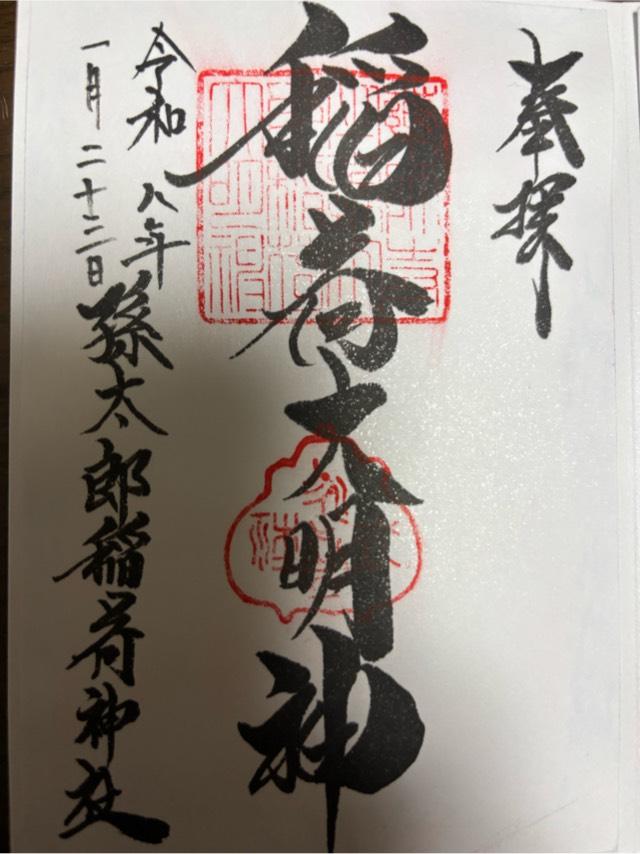 奉拝
稲荷大明神
令和八年
一月二十二日
孫太郎稲荷神社